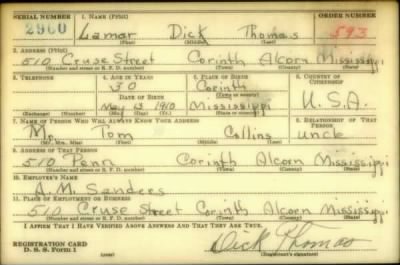 SERIAL NUMBER 1. NAME (Print) ORDER NUMBER
2960 Lamar Dick Thomas 593
(First) (Middle) (Last)
2. ADDRESS (Print)
510 Cruse Street Corinth Alcorn Mississippi
(Number and street or R. F. D. number) (Town) (County) (State)
3. TELEPHONE 4. AGE IN YEARS 5. PLACE OF BIRTH 6. COUNTRY OF CITIZENSHIP
30 Corinth
DATE OF BIRTH (Town or county)
May 13 1910 Mississippi U.S.A.
(Exchange) (Number) (Mo.) (Day) (Yr.) (State or country)
7. NAME OF PERSON WHO WILL ALWAYS KNOW YOUR ADDRESS 8. RELATIONSHIP OF THAT PERSON
Mr. Tom Collins uncle
(Mr., Mrs., Miss) (First) (Middle) (Last)
9. ADDRESS OF THAT PERSON
510 Penn Corinth Alcorn Mississippi
(Number and street or R. F. D. number) (Town) (County) (State)
10. EMPLOYER'S NAME
A.M. Sanders
11. PLACE OF EMPLOYMENT OR BUSINESS
510 Cruse Street Corinth Alcorn Mississippi
(Number and street or R. F. D. number) (Town) (County) (State)
I AFFIRM THAT I HAVE VERIFIED ABOVE ANSWERS AND THAT THEY ARE TRUE.
REGISTRATION CARD
D. S. S. Form 1 Dick Thomas
(Registrant's signature)